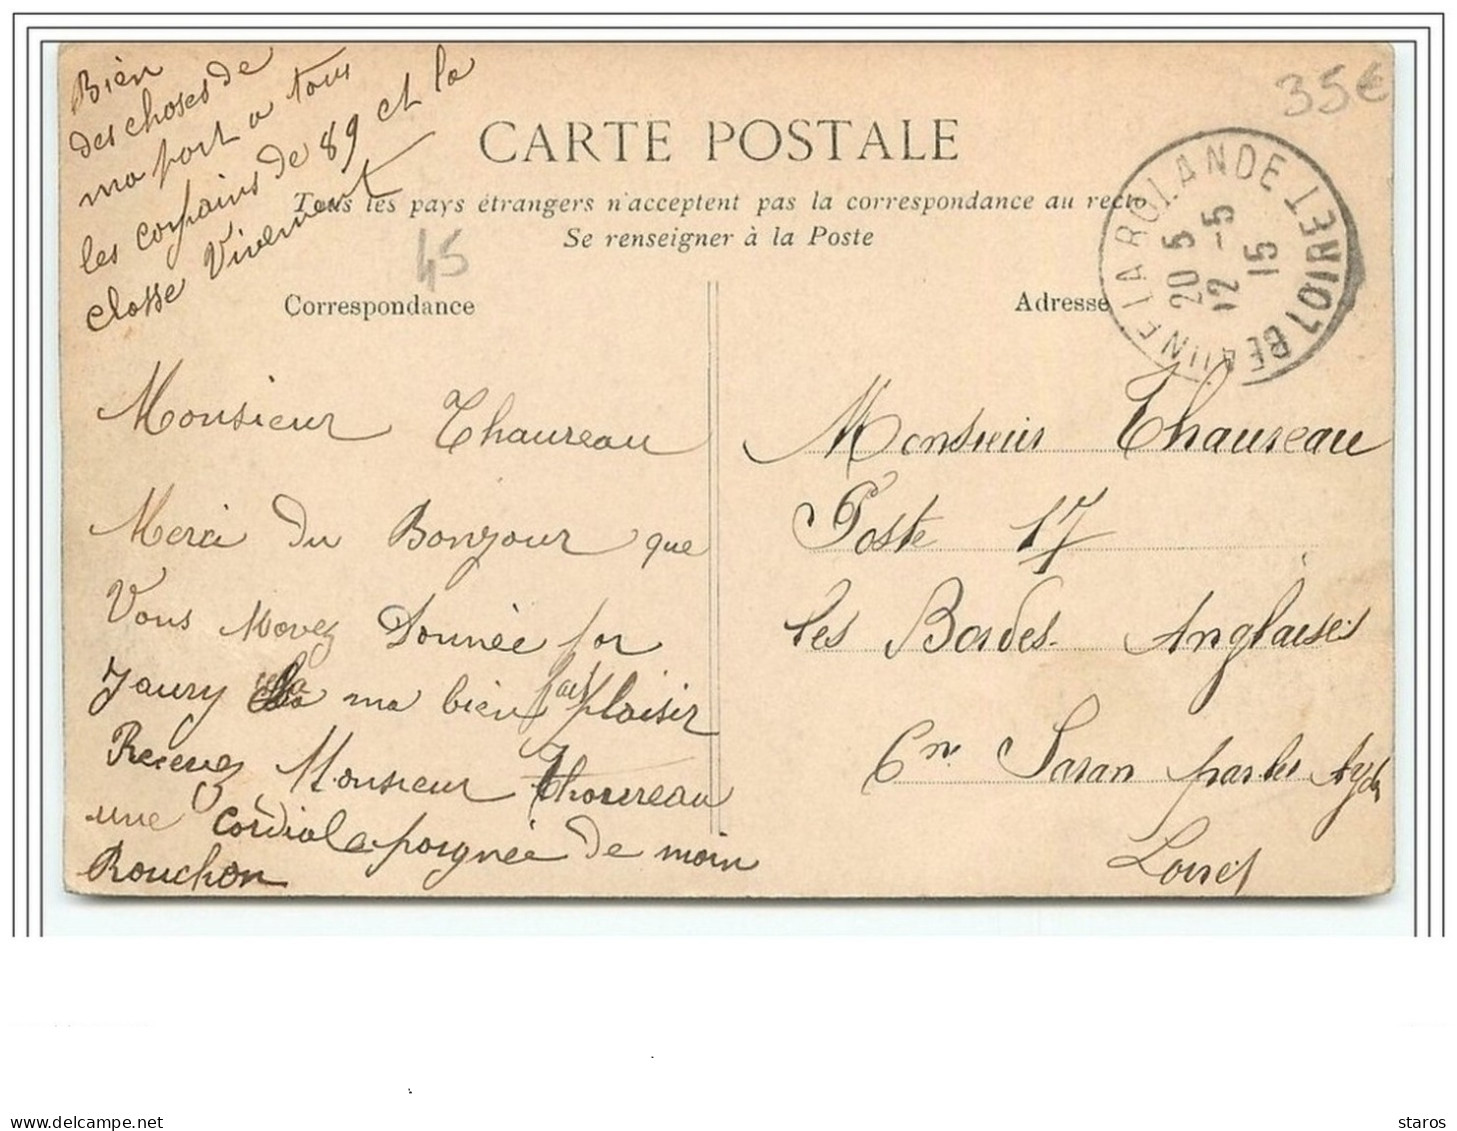 Bien
des choses de
ma part a tous
les copains de 89 et la
classe Vivement
35€
CARTE POSTALE
Tous les pays étrangers n'acceptent pas la correspondance au recto
Se renseigner à la Poste
45
Correspondance
Adresse
BEAUNE LA ROLANDE LOIRET
20 5
12 -5
15
Monsieur Thaureau
Merci du Bonjour que
Vous Mavez Donnée par
Jaury ma bien fait plaisir
Recevez Monsieur Thaureau
une cordiale poignée de main
Rouchon
Monsieur Thaureau
Poste 17
les Bordes Anglaises
Cne Saran par les Aydes
Loiret
staros